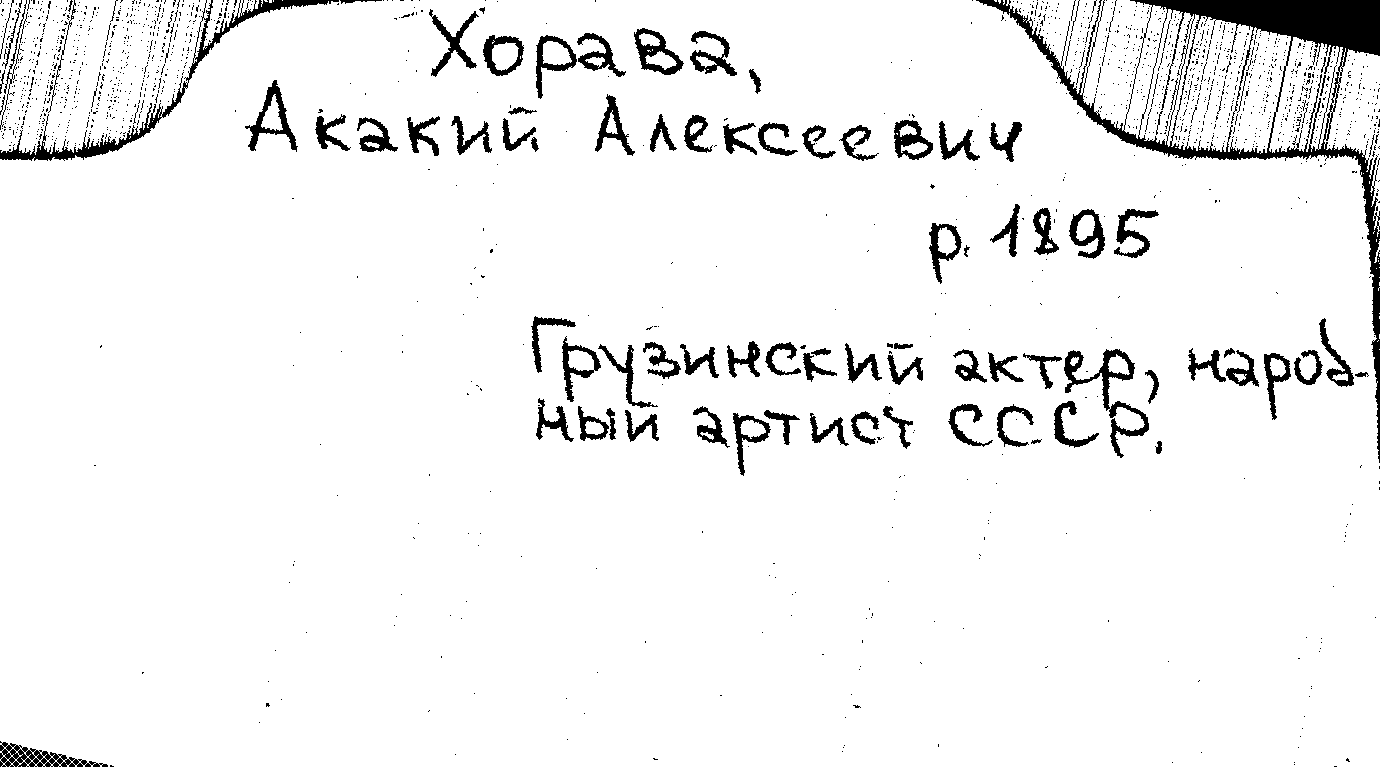 Хорава,
Акакий Алексеевич
р. 1895
Грузинский актер, народ-
ный артист СССР.